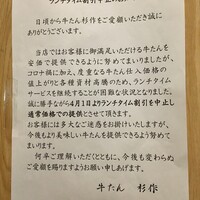 日頃から牛たん杉作をご愛顧いただき誠に
ありがとうございます。
当店ではお客様に御満足いただける牛たんを
安価で提供できるように努めてまいりましたが、
コロナ禍に加え、度重なる牛たん仕入価格の
値上がりと各種資材高騰のため、ランチタイム
サービスを継続することが困難な状況となりました。
誠に勝手ながら4月1日よりランチタイム割引を中止し
通常価格での提供とさせて頂きます。
お客様には多大なご迷惑をお掛けいたしますが、
今後もより美味しい牛たんを提供できるよう努めて
まいります。
何卒ご理解いただくとともに、今後も変わらぬ
ご愛顧を賜りますようお願い申しあげます。
牛たん 杉作